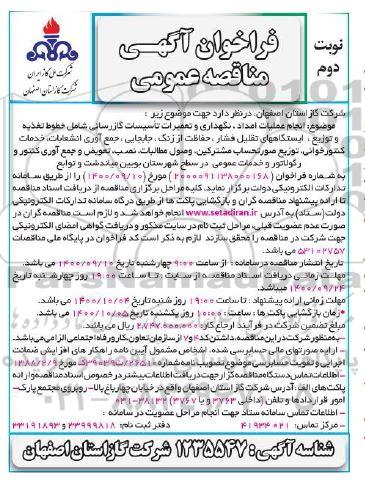 نوبت
دوم
فراخوان آگهی
مناقصه عمومی
شرکت ملی گاز ایران
شرکت گاز استان اصفهان
شرکت گاز استان اصفهان، در نظر دارد جهت موضوع زیر :
موضوع: انجام عملیات امداد ، نگهداری و تعمیرات تأسیسات گازرسانی شامل خطوط تغذیه
و توزیع ، ایستگاههای تقلیل فشار ، حفاظت از زنگ ، جابجایی ، جمع آوری انشعابات، خدمات
کنتورخوانی، توزیع صورتحساب مشترکین، وصول مطالبات، نصب، تعویض و جمع آوری کنتور و
رگولاتور و خدمات عمومی در سطح شهرستان بویین میاندشت و توابع
به شماره فراخوان ( 2000091138000168 ) مورخ (1400/09/10) را از طریق سامانه
تدارکات الکترونیکی دولت برگزار نماید. کلیه مراحل برگزاری مناقصه از دریافت اسناد مناقصه
تا ارائه پیشنهاد مناقصه گران و بازگشایی پاکت ها از طریق درگاه سامانه تدارکات الکترونیکی
دولت (ستاد) به آدرس www.setadiran.ir انجام خواهد شد و لازم است مناقصه گران در
صورت عدم عضویت قبلی، مراحل ثبت نام در سایت مذکور و دریافت گواهی امضای الکترونیکی
جهت شرکت در مناقصه را محقق سازند. لازم به ذکر است کد فراخوان در پایگاه ملی مناقصات
53102757 می باشد.
تاریخ انتشار مناقصه در سامانه : از ساعت 9:00 چهارشنبه تاریخ 1400/09/10 می باشد.
مهلت زمانی دریافت اسناد مناقصه از سایت : تا ساعت 19:00 روز چهارشنبه تاریخ
1400/09/24 میباشد.
مهلت زمانی ارائه پیشنهاد : تا ساعت 19:00 روز شنبه تاریخ 1400/10/04 می باشد.
*زمان بازگشایی پاکت ها : ساعت 10:00 روز یکشنبه تاریخ 1400/10/05 می باشد.
مبلغ تضمین شرکت در فرآیند ارجاع کار: 2/847/000/000 ریال می باشد.
به منظور شرکت در این مناقصه، داشتن کد 4 و 7 از سازمان تعاون، کار و رفاه اجتماعی الزامی می باشد.
ارایه صورتهای مالی حسابرسی شده، اشخاص مشمول آیین نامه راهکار های افزایش ضمانت
اجرایی و تقویت حسابرسی موضوع تصویب نامه شماره
اطلاعات تماس دستگاه مناقصه گزار جهت دریافت اطلاعات بیشتر در خصوص اسناد مناقصه و ارائه
پاکت های الف: آدرس شرکت گاز استان اصفهان واقع در خیابان چهارباغ بالا- روبروی مجتمع پارک-
امور قراردادها و تلفن (داخلی 3763 و یا 3767) 38132-031
- اطلاعات تماس سامانه ستاد جهت انجام مراحل عضویت در سامانه :
- مرکز تماس: 021 41934 دفتر ثبت نام: 33999818 و 33191893
شناسه آگهی : 1235547 شرکت گاز استان اصفهان